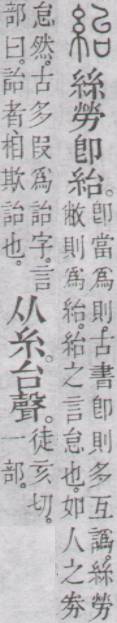 紿 絲勞卽紿。
卽當爲則。古書卽則多互譌。絲勞
敝則爲紿。紿之言怠也。如人之券
怠然。古多叚爲詒字。言
部曰。詒者相欺詒也。
从糸。台聲。
徒亥切。
一部。